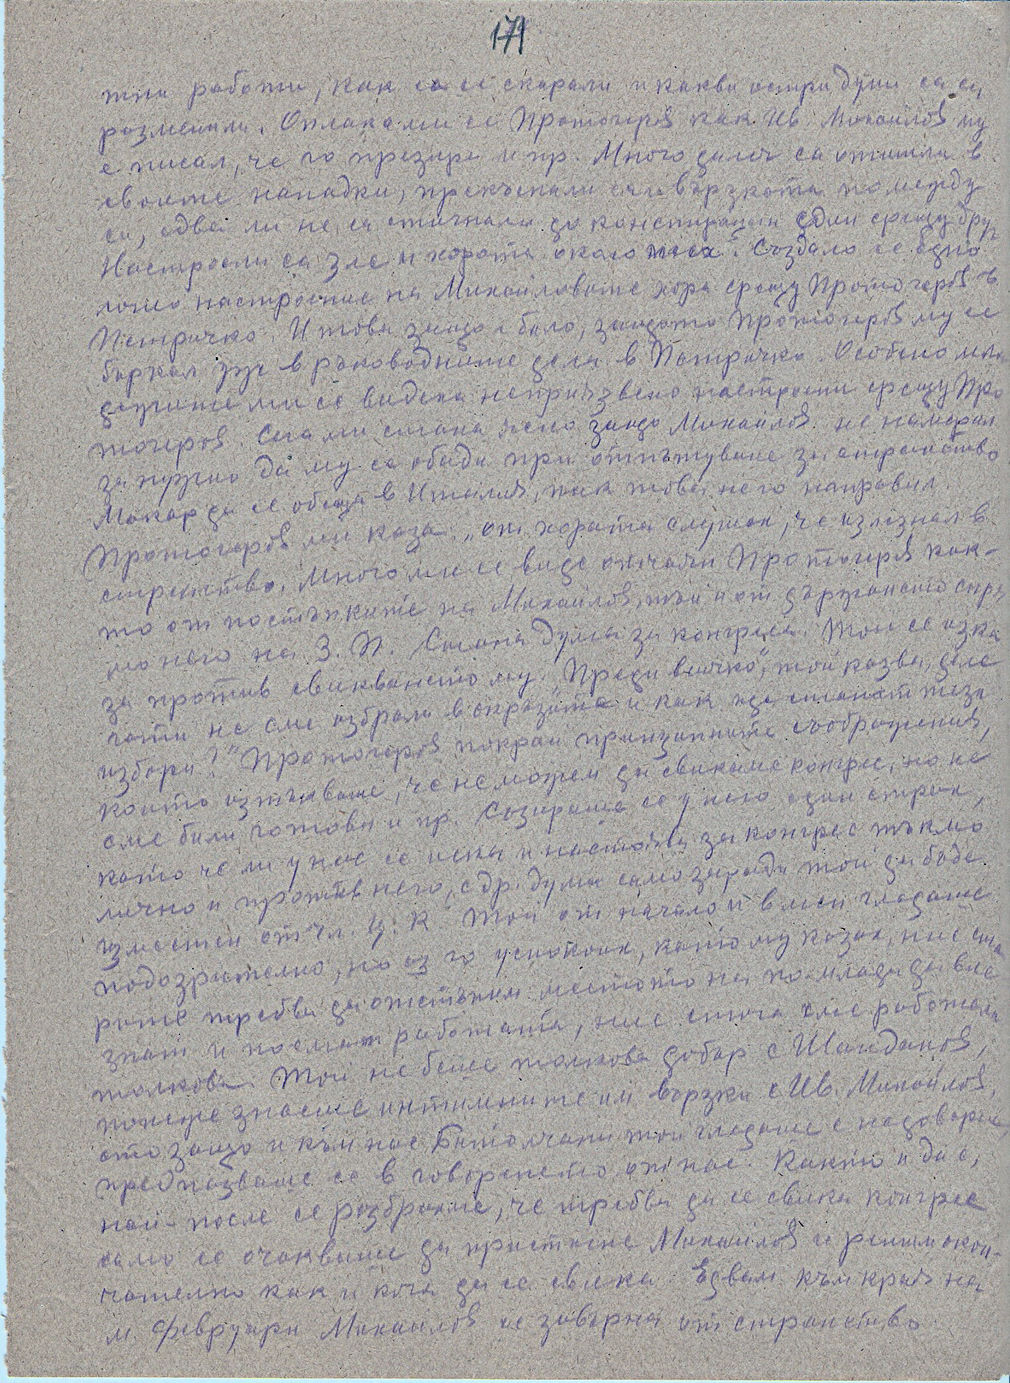 171
тия работи, как са се скарали и какви остри думи са си
разменили. Оплака ми се Протогеров как Ив. Михайлов му
е писал, че го презира и пр. Много далеч са отишли в
своите нападки, прекъснали са и връзката помежду
си, едва ли не са стигнали до конспирации един срещу друг
Настроени са зле и хората около тях. Създало се едно
лошо настроение на Михайловите хора срещу Протогеров в
Петричко. И това защо е било, защото Протогеров му се
бъркал в ръководните дела в Петричко. Особено
ми се видеха неприязнено настроени срещу Про
тогеров. Сега ми стана ясно защо Михайлов не намерил
за нужно да му се обади при отпътуване за странство
Макар да се обеща в Италия, пак това него направил.
Протогеров ми каза: „от хората слушам, че излезнал в
странство. Много ми се виде отчаян Протогеров как-
то от постъпките на Михайлов, тъй и от държанието спря
мо него на З. П. Стана дума за конгреса. Той се изка
за против свикването му. Преди всичко", той казва, деле
гати не сме избрали в окръзите и как ще станат тези
избори?" Протогеров покрай принципните съображения,
които изтъкваше, че не можем да свикаме конгрес, че не
сме били готови и пр. Съзираше се у него един страх,
като че ли у нас се иска и настоява за конгрес тъкмо
лично и против него, с др. думи само заради той да бъде
изместен от чл. Ц. К. Той от начало и в мен гледаше
подозрително, но аз го успокоих, като му казах, ние ста
рите требва да отстъпим местото на по млади да вле
знат и поемат работата, ние стига сме работили
толкова. Той не беше толкова добър с Шанданов,
понеже знаеше интимните им връзки с Ив. Михайлов,
ето защо и към нас Битолчани той гледаше с недоверие,
предпазваше се в говорението от нас. Както и да е,
най-после се разбрахме, че требва да се свика конгрес
само се очакваше да пристигне Михайлов и решим окон-
чателно как и кога да се свика. Едвам към края на
м. февруари Михайлов се завърна от странство.